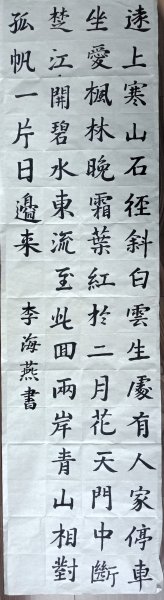 遠上寒山石徑斜白雲生處有人家停車
坐愛楓林晚霜葉紅於二月花天門中斷
楚江開碧水東流至此回兩岸青山相對
孤帆一片日邊來
李海燕書